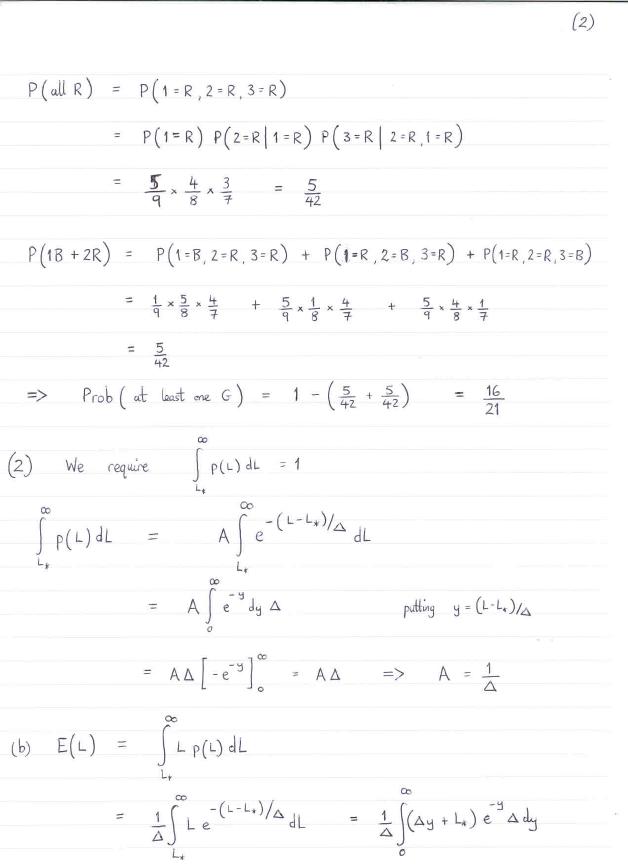 (2)
P(all R) = P(1=R, 2=R, 3=R)
= P(1=R) P(2=R|1=R) P(3=R|2=R,1=R)
= 5/9 × 4/8 × 3/7 = 5/42
P(1B + 2R) = P(1=B, 2=R, 3=R) + P(1=R, 2=B, 3=R) + P(1=R, 2=R, 3=B)
= 1/9 × 5/8 × 4/7 + 5/9 × 1/8 × 4/7 + 5/9 × 4/8 × 1/7
= 5/42
=> Prob(at least one G) = 1 - (5/42 + 5/42) = 16/21
(2) We require ∫_{L*}^{∞} p(L) dL = 1
∫_{L*}^{∞} p(L) dL = A ∫_{L*}^{∞} e^{-(L-L*)/Δ} dL
= A ∫_{0}^{∞} e^{-y} dy Δ putting y = (L-L*)/Δ
= AΔ [-e^{-y}]_{0}^{∞} = AΔ => A = 1/Δ
(b) E(L) = ∫_{L*}^{∞} L p(L) dL
= 1/Δ ∫_{L*}^{∞} L e^{-(L-L*)/Δ} dL = 1/Δ ∫_{0}^{∞} (Δy + L*) e^{-y} Δ dy